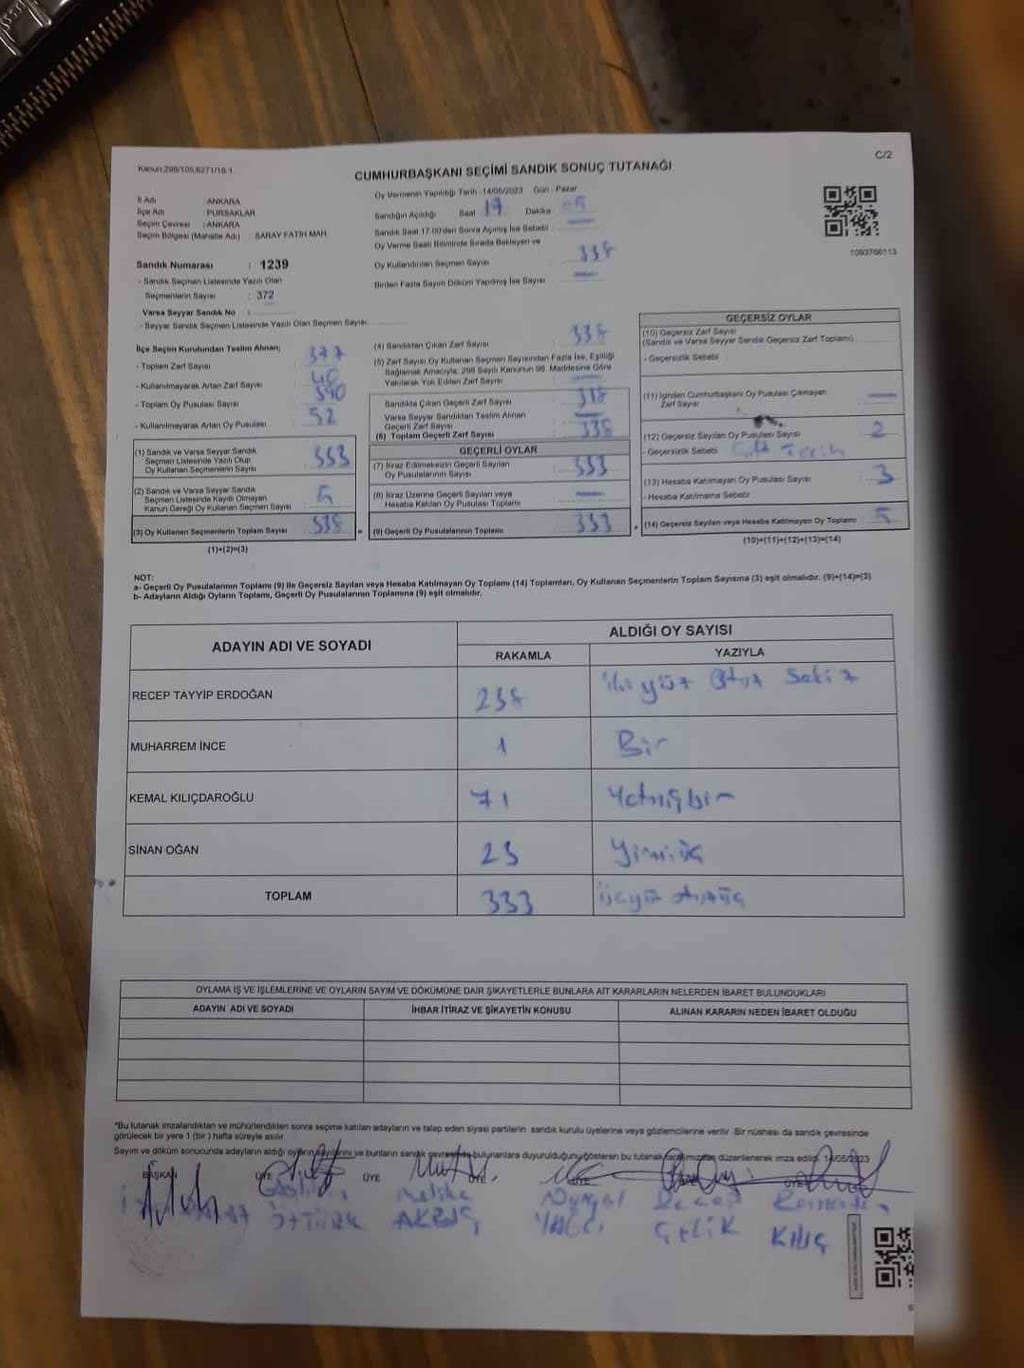 Kanun:298/105,6271/18-1
C/2
CUMHURBAŞKANI SEÇİMİ SANDIK SONUÇ TUTANAĞI
İl Adı : ANKARA
İlçe Adı : PURSAKLAR
Seçim Çevresi : ANKARA
Seçim Bölgesi (Mahalle Adı) : SARAY FATİH MAH.
Oy Vermenin Yapıldığı Tarih : 14/05/2023 Gün : Pazar
Sandığın Açıldığı Saat 17 Dakika
Sandık Saat 17:00'den Sonra Açılmış İse Sebebi
Oy Verme Saati Bitiminde Sırada Bekleyen ve
Oy Kullandırılan Seçmen Sayısı 338
Birden Fazla Sayım Döküm Yapılmış İse Sayısı
1093766113
Sandık Numarası : 1239
- Sandık Seçmen Listesinde Yazılı Olan
Seçmenlerin Sayısı : 372
Varsa Seyyar Sandık No :
- Seyyar Sandık Seçmen Listesinde Yazılı Olan Seçmen Sayısı
İlçe Seçim Kurulundan Teslim Alınan;
- Toplam Zarf Sayısı 377
- Kullanılmayarak Artan Zarf Sayısı 40
- Toplam Oy Pusulası Sayısı 390
- Kullanılmayarak Artan Oy Pusulası 52
(1) Sandık ve Varsa Seyyar Sandık
Seçmen Listesinde Yazılı Olup
Oy Kullanan Seçmenlerin Sayısı 333
(2) Sandık ve Varsa Seyyar Sandık
Seçmen Listesinde Kayıtlı Olmayan
Kanun Gereği Oy Kullanan Seçmen Sayısı 5
(3) Oy Kullanan Seçmenlerin Toplam Sayısı 338
(1)+(2)=(3)
(4) Sandıktan Çıkan Zarf Sayısı 338
(5) Zarf Sayısı Oy Kullanan Seçmen Sayısından Fazla İse, Eşitliği
Sağlamak Amacıyla, 298 Sayılı Kanunun 98. Maddesine Göre
Yakılarak Yok Edilen Zarf Sayısı
Sandıkta Çıkan Geçerli Zarf Sayısı 338
Varsa Seyyar Sandıktan Teslim Alınan
Geçerli Zarf Sayısı
(6) Toplam Geçerli Zarf Sayısı 338
GEÇERLİ OYLAR
(7) İtiraz Edilmeksizin Geçerli Sayılan
Oy Pusulalarının Sayısı 333
(8) İtiraz Üzerine Geçerli Sayılan veya
Hesaba Katılan Oy Pusulası Toplamı
(9) Geçerli Oy Pusulalarının Toplamı 333
GEÇERSİZ OYLAR
(10) Geçersiz Zarf Sayısı
(Sandık ve Varsa Seyyar Sandık Geçersiz Zarf Toplamı)
- Geçersizlik Sebebi
(11) İçinden Cumhurbaşkanı Oy Pusulası Çıkmayan
Zarf Sayısı
(12) Geçersiz Sayılan Oy Pusulası Sayısı 2
- Geçersizlik Sebebi
(13) Hesaba Katılmayan Oy Pusulası Sayısı 3
- Hesaba Katılmama Sebebi
(14) Geçersiz Sayılan veya Hesaba Katılmayan Oy Toplamı 5
(10)+(11)+(12)+(13)=(14)
NOT:
a- Geçerli Oy Pusulalarının Toplamı (9) ile Geçersiz Sayılan veya Hesaba Katılmayan Oy Toplamı (14) Toplamları, Oy Kullanan Seçmenlerin Toplam Sayısına (3) eşit olmalıdır. (9)+(14)=(3)
b- Adayların Aldığı Oyların Toplamı, Geçerli Oy Pusulalarının Toplamına (9) eşit olmalıdır.
ADAYIN ADI VE SOYADI
ALDIĞI OY SAYISI
RAKAMLA
YAZIYLA
RECEP TAYYİP ERDOĞAN 238 iki yüz Otuz Sekiz
MUHARREM İNCE 1 Bir
KEMAL KILIÇDAROĞLU 71 Yetmişbir
SİNAN OĞAN 23
TOPLAM 333
OYLAMA İŞ VE İŞLEMLERİNE VE OYLARIN SAYIM VE DÖKÜMÜNE DAİR ŞİKAYETLERLE BUNLARA AİT KARARLARIN NELERDEN İBARET BULUNDUKLARI
ADAYIN ADI VE SOYADI
İHBAR İTİRAZ VE ŞİKAYETİN KONUSU
ALINAN KARARIN NEDEN İBARET OLDUĞU
*Bu tutanak imzalandıktan ve mühürlendikten sonra seçime katılan adayların ve talep eden siyasi partilerin sandık kurulu üyelerine veya gözlemcilerine verilir. Bir nüshası da sandık çevresinde
görülecek bir yere 1 (bir) hafta süreyle asılır.
Sayım ve döküm sonucunda adayların aldığı oyların sayılarını ve bunların sandık çevresinde bulunanlara duyurulduğunu gösteren bu tutanak tarafımızdan düzenlenerek imza edildi. 14/05/2023
BAŞKAN ÜYE ÜYE ÜYE
ÖZTÜRK AKBAŞ YAĞCI ÇELİK KILIÇ